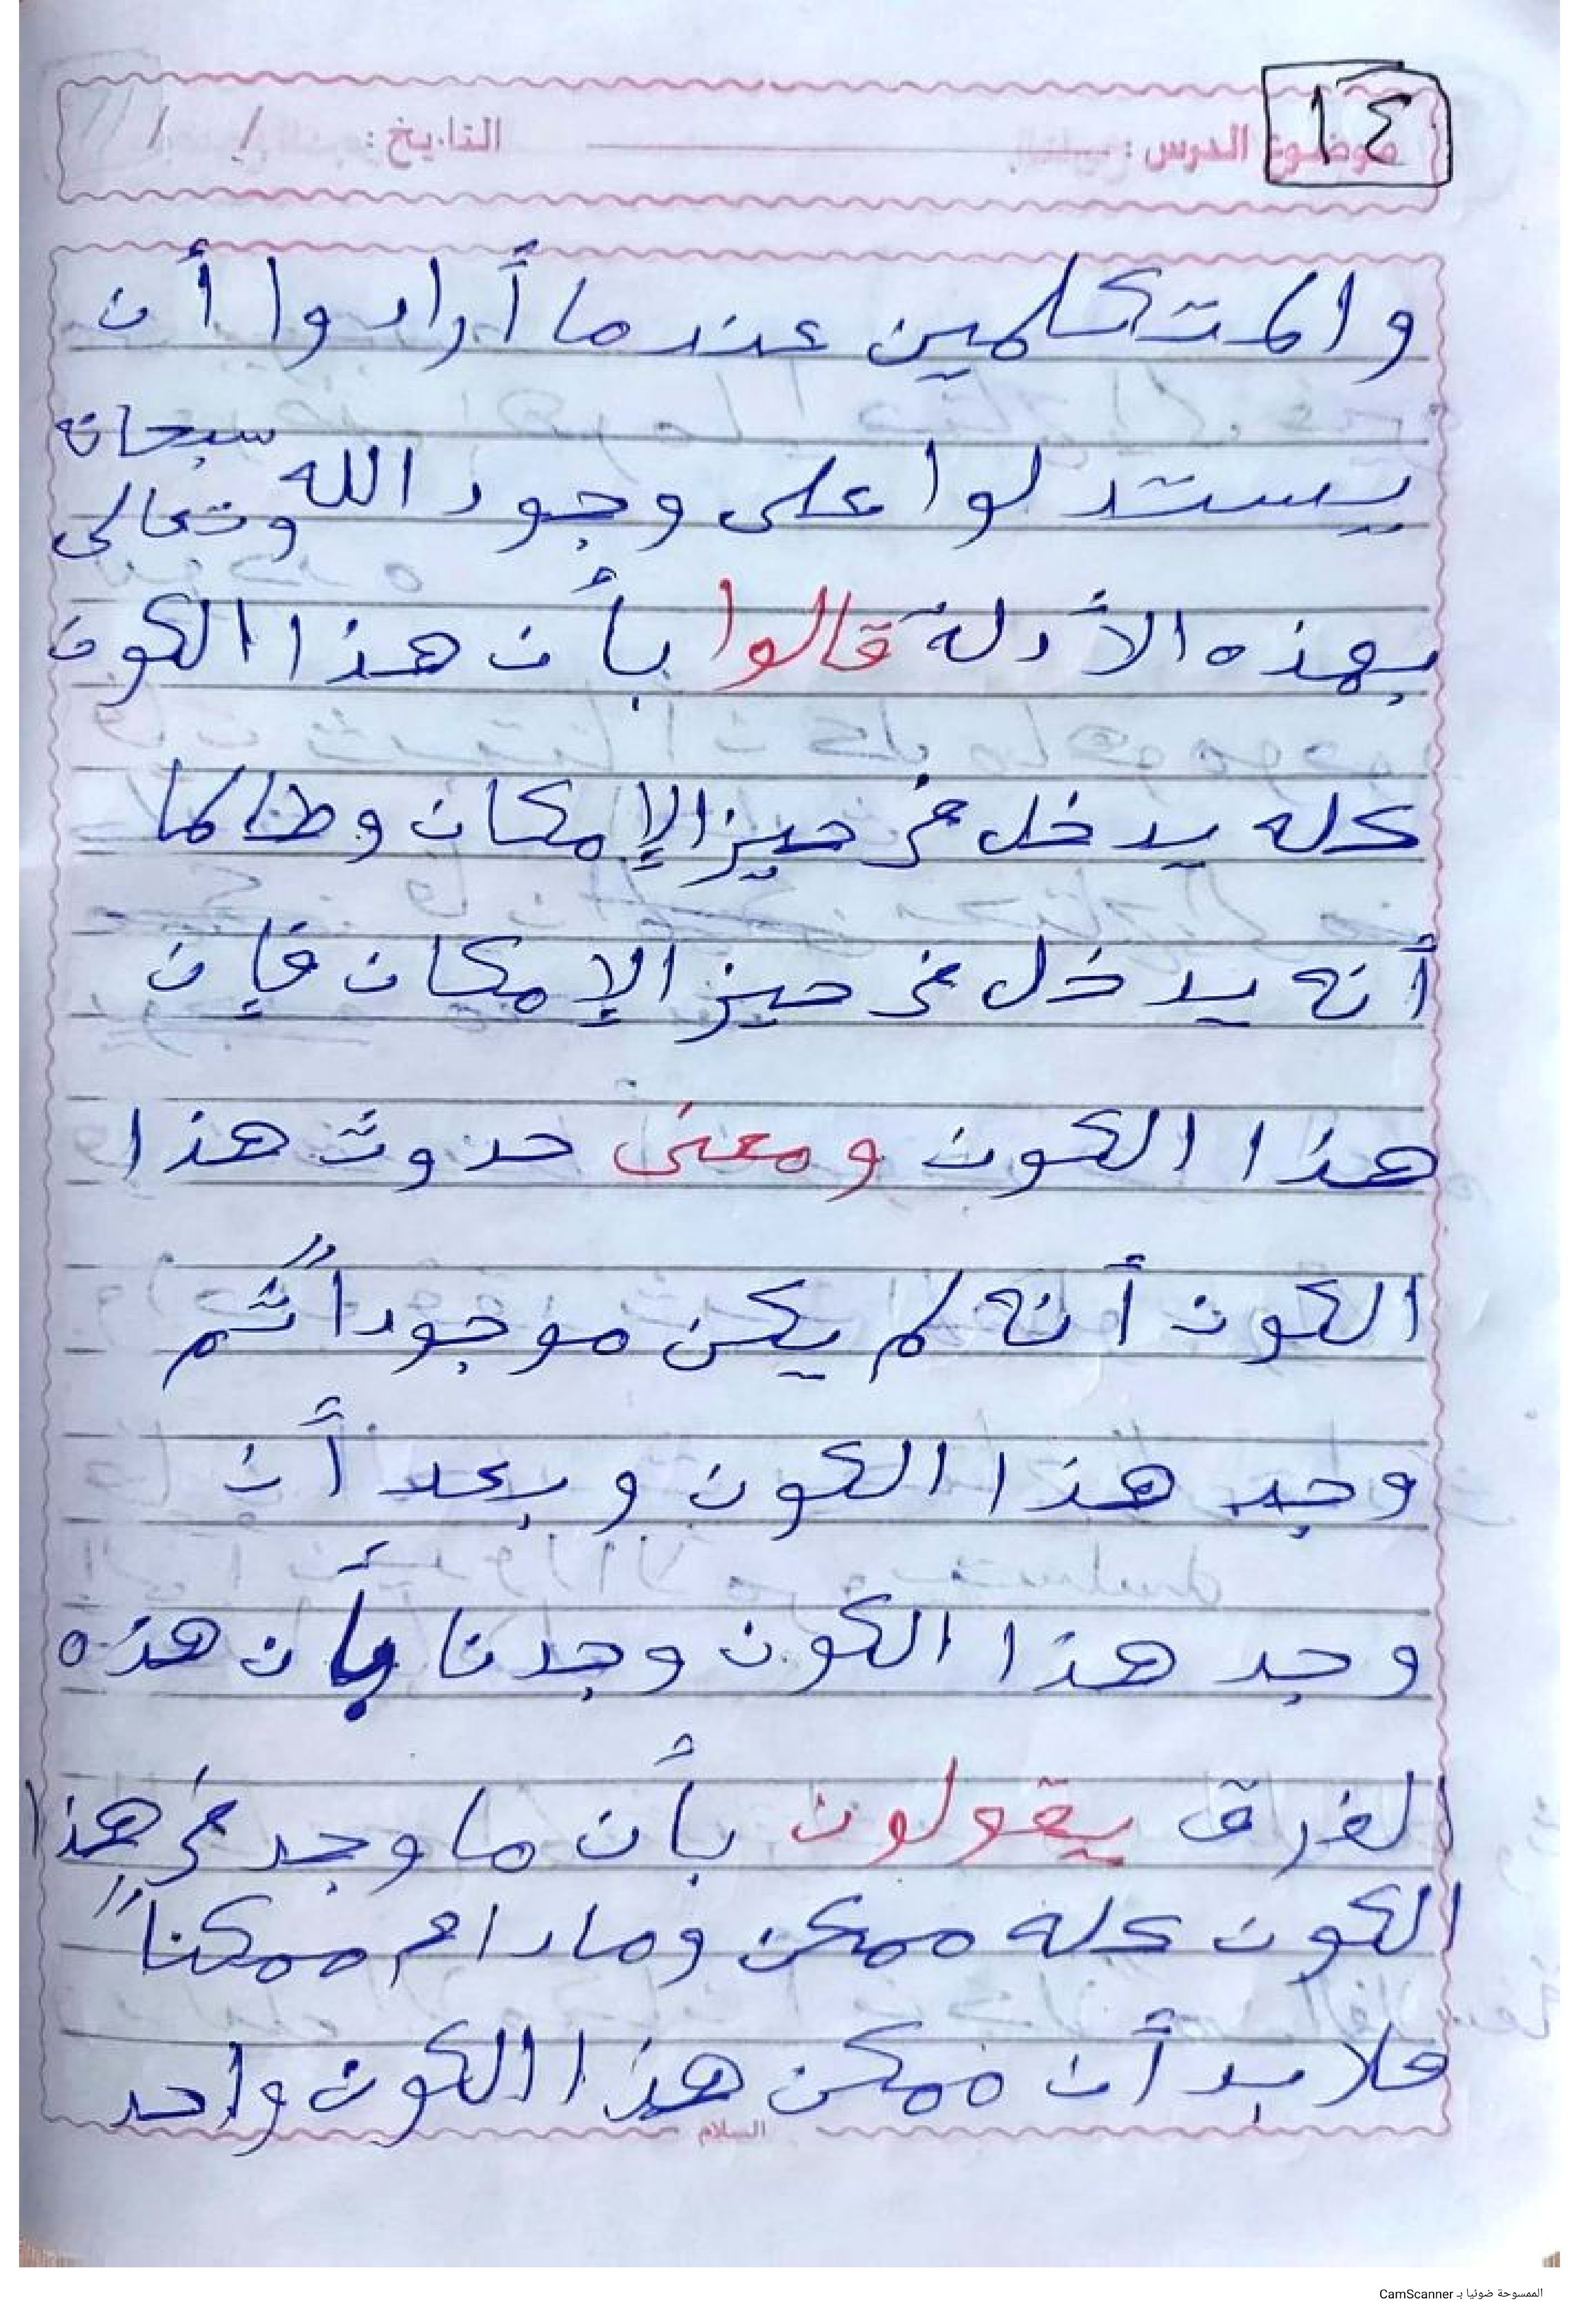 ١٤
موضوع الدرس : التاريخ : / /
والمتكلمين عندما أرادوا أن
يستدلوا على وجود الله سبحانه وتعالى
بهذه الأدلة قالوا بأن هذا الكون
كله يدخل في حيز الإمكان وطالما
أنه يدخل في حيز الإمكان فإن
هذا الكون ومعنى حدوث هذا
الكون أنه لم يكن موجوداً ثم
وجد هذا الكون وبعد أن
وجد هذا الكون وجدنا بأن هذه
الفرق يقولون بأن ما وجد في هذا
الكون كله ممكن ومادام ممكناً
فلابد أن ممكن هذا الكون واحد
السلام
الممسوحة ضوئيا بـ CamScanner